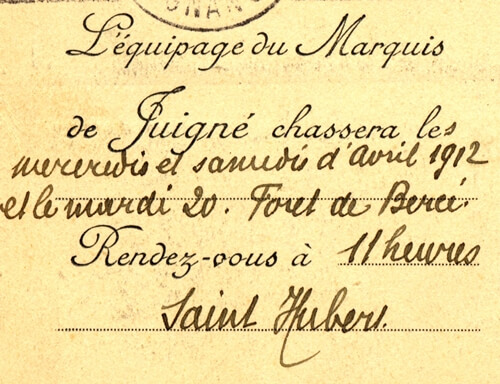 GNAN
L'équipage du Marquis
de Juigné chassera les
mercredis et samedis d'Avril 1912
et le mardi 20. Foret de Bercé.
Rendez-vous à 11 heures
Saint Hubert.